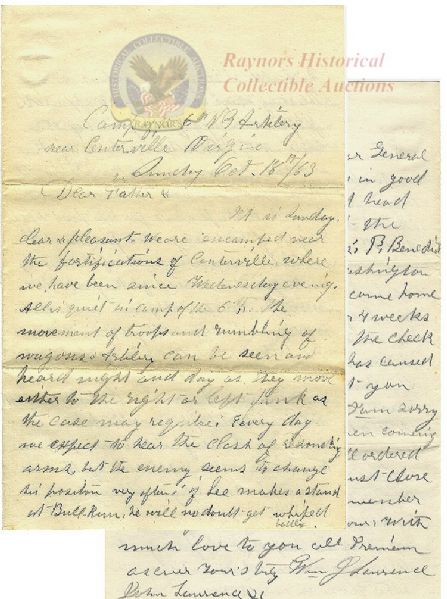 Raynors Historical
Collectible Auctions
HISTORICAL COLLECTIBLE AUCTIONS
RAYNORS'
Camp 6th N Y Artillery
near Centerville Virginia
Sunday Oct. 18th/63
Dear Father &
It is Sunday
clear & pleasant, we are encamped near
the fortifications of Centerville where
we have been since Wednesday evening.
All is quiet in camp of the 6th. The
movement of troops and rumbling of
wagons & Artillery can be seen and
heard night and day as they move
either to the right or left flank as
the case may require; Every day
we expect to hear the clash of
arms, but the enemy seems to change
his position very often; if Lee makes a stand
at Bull Run, he will no doubt get whipped
badly
General
in good
head
the
P. Benedict
Washington
come home
4 weeks
the check
has caused
you
I am sorry
coming
ordered
must close
remember
your with
much love to you all I remain
as ever yours truly Wm J Lawrence
John Lawrence